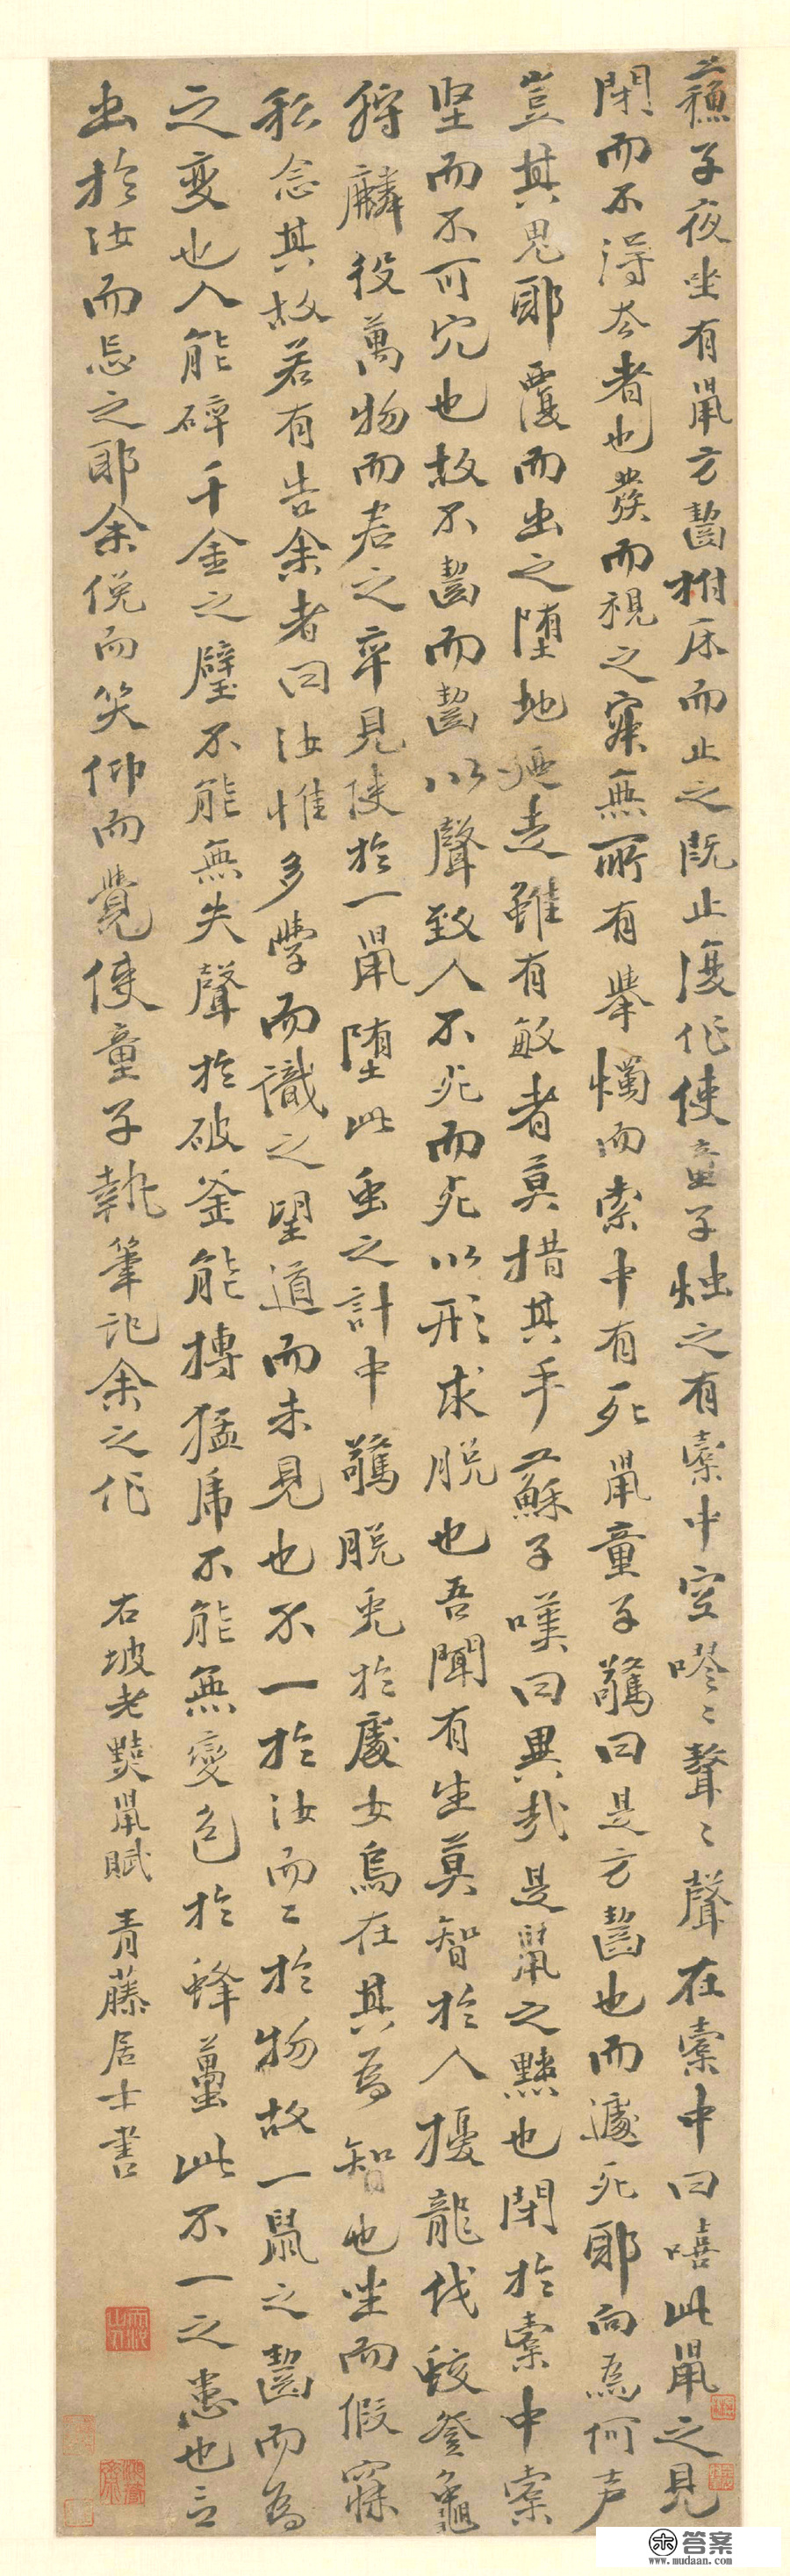 蘇子夜坐有鼠方齧拊床而止之既止復作使童子燭之有橐中空嘐〻聱〻聲在橐中曰嘻此鼠之見
閉而不得去者也發而視之寂無所有舉燭而索中有死鼠童子驚曰是方齧也而遽死耶向為何声
豈其鬼耶覆而出之墮地廼走雖有敏者莫措其手蘇子嘆曰異哉是鼠之黠也閉於橐中橐
坚而不可穴也故不齧而齧以聲致人不死而死以形求脱也吾聞有生莫智於人擾龍伐蛟登龜
狩麟役萬物而君之卒見使於一鼠墮此虫之計中驚脱兔於處女烏在其為智也坐而假寐
私念其故若有告余者曰汝惟多學而識之望道而未見也不一於汝而二於物故一鼠之齧而為
之変也人能碎千金之璧不能無失聲於破釜能搏猛虎不能無變色於蜂蠆此不一之患也言
出於汝而忘之耶余俛而笑仰而覺使童子執筆記余之作 右坡老黠鼠賦 青藤居士書
天池山人
答案
www.mudaan.com